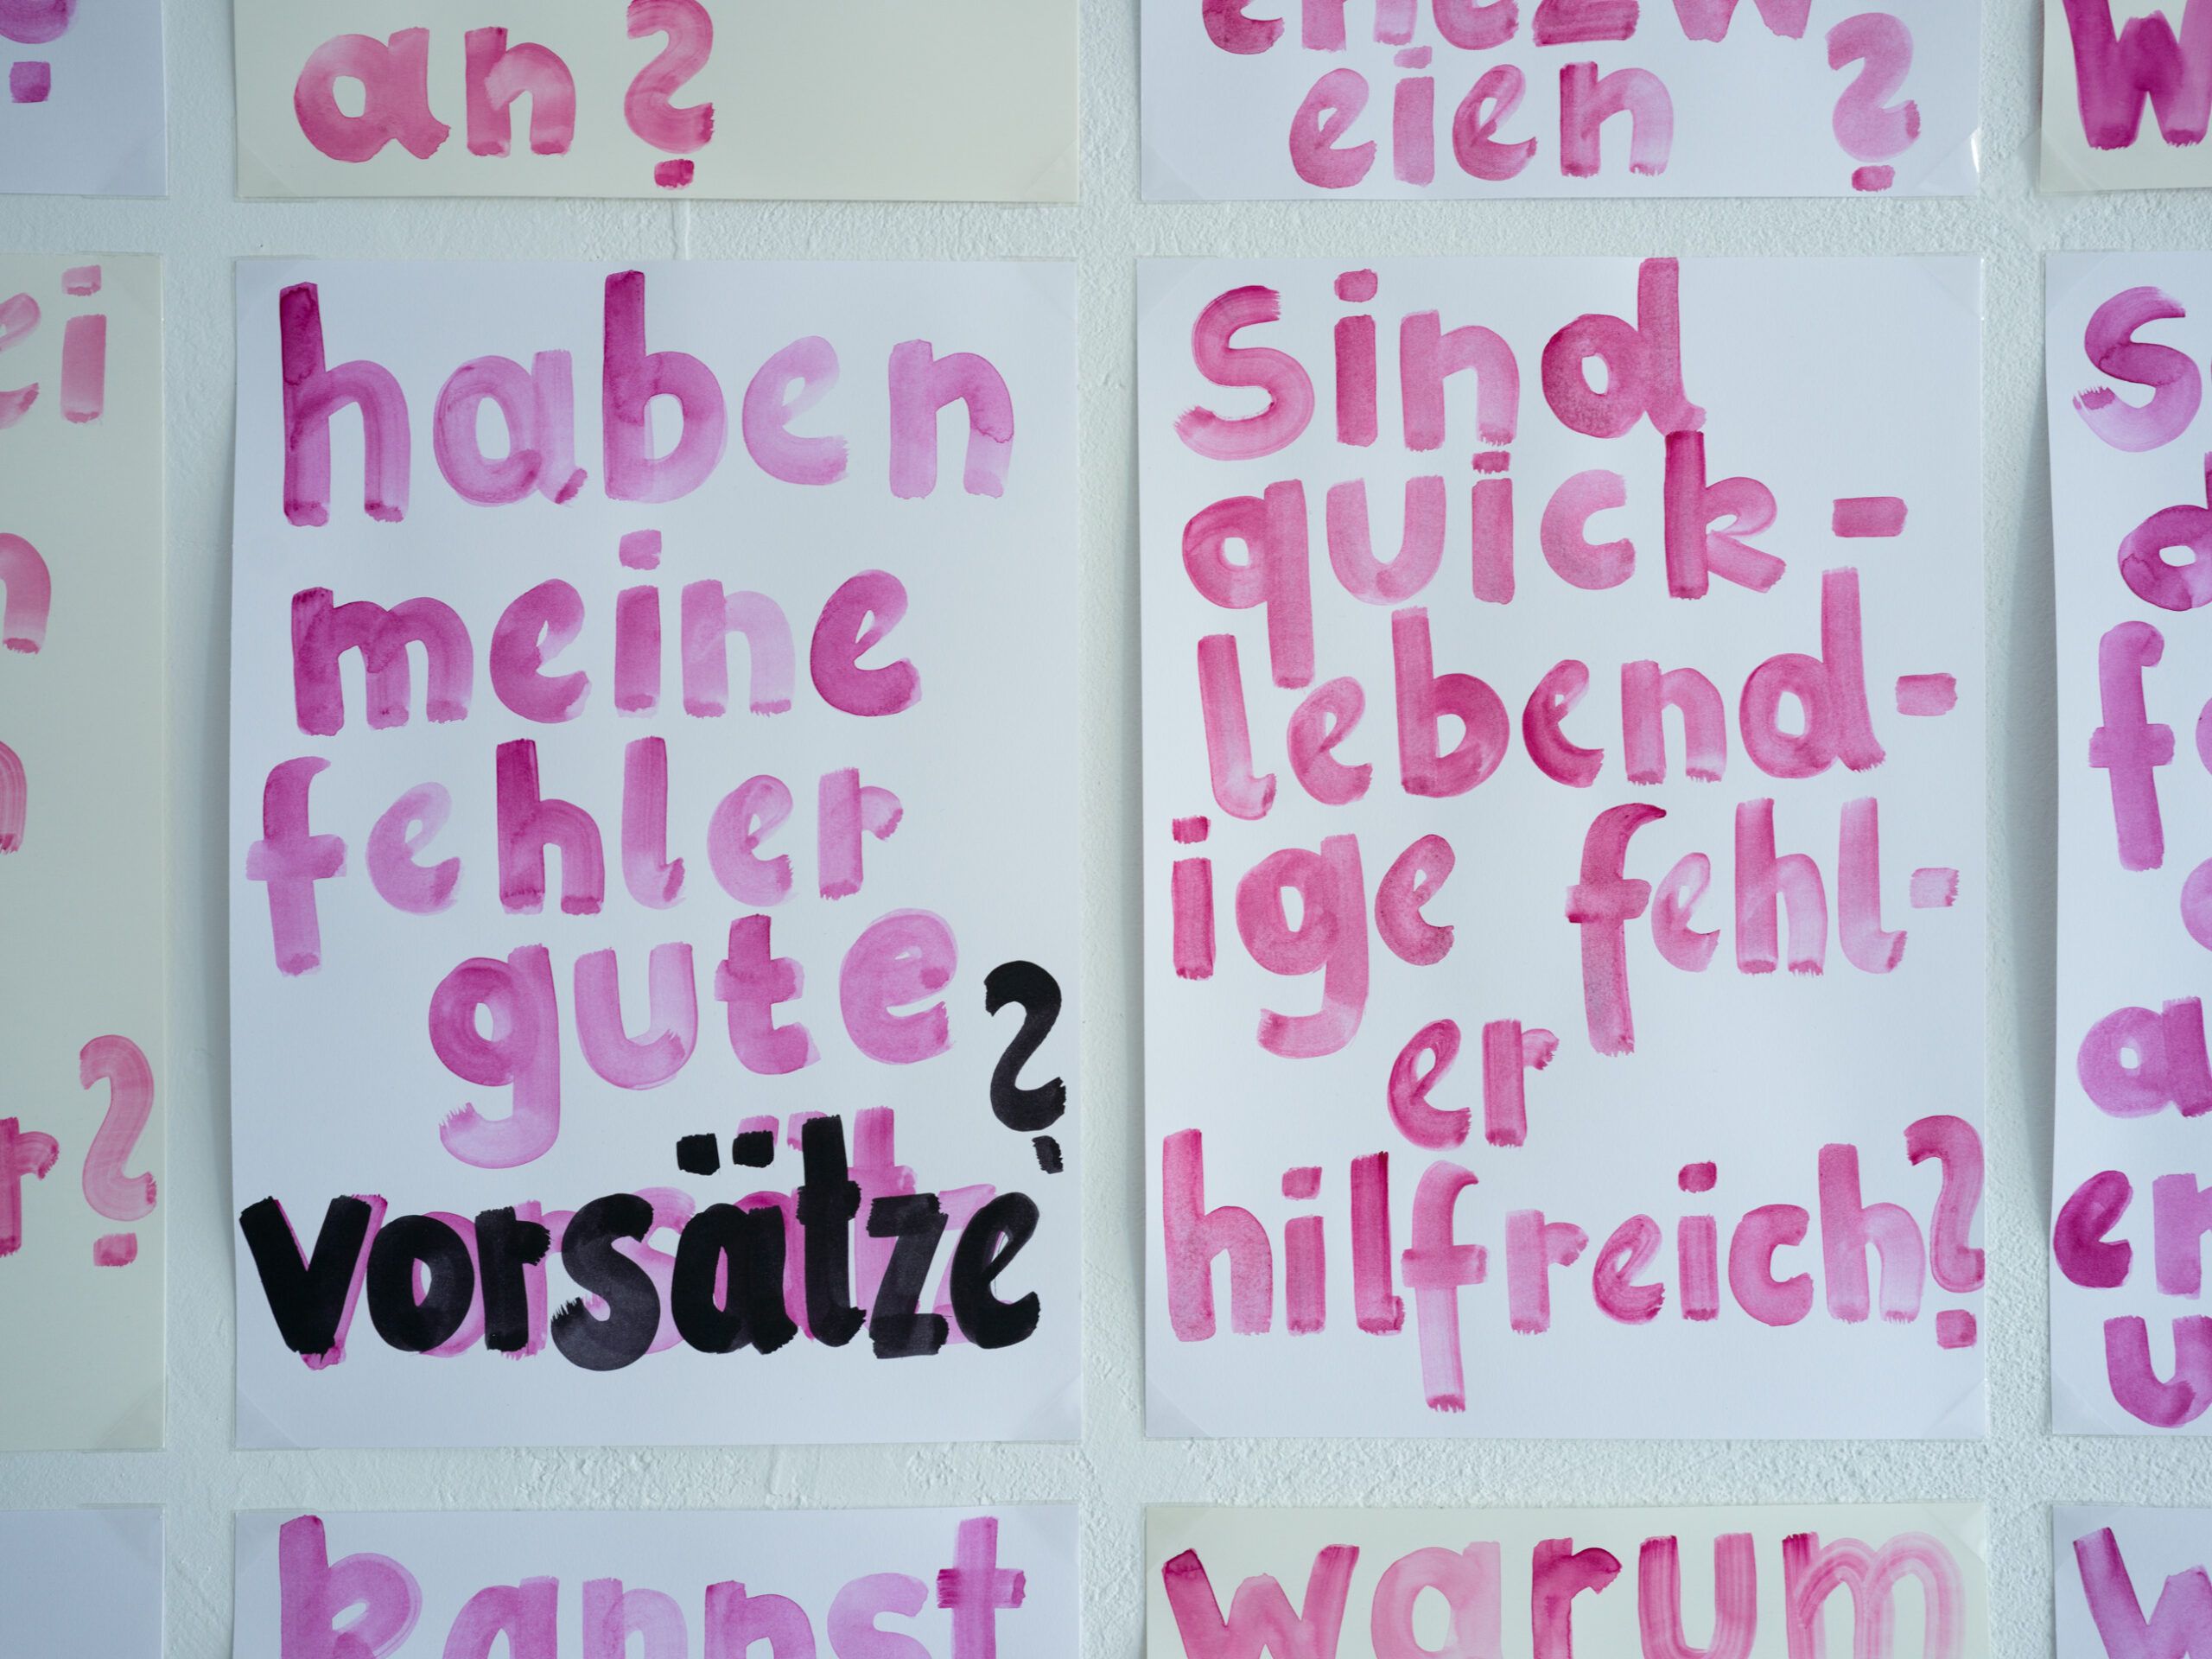 an?
eien?
haben
meine
fehler
gute
vorsätze?
sind
quick-
lebend-
ige fehl-
er
hilfreich?
kannst
warum